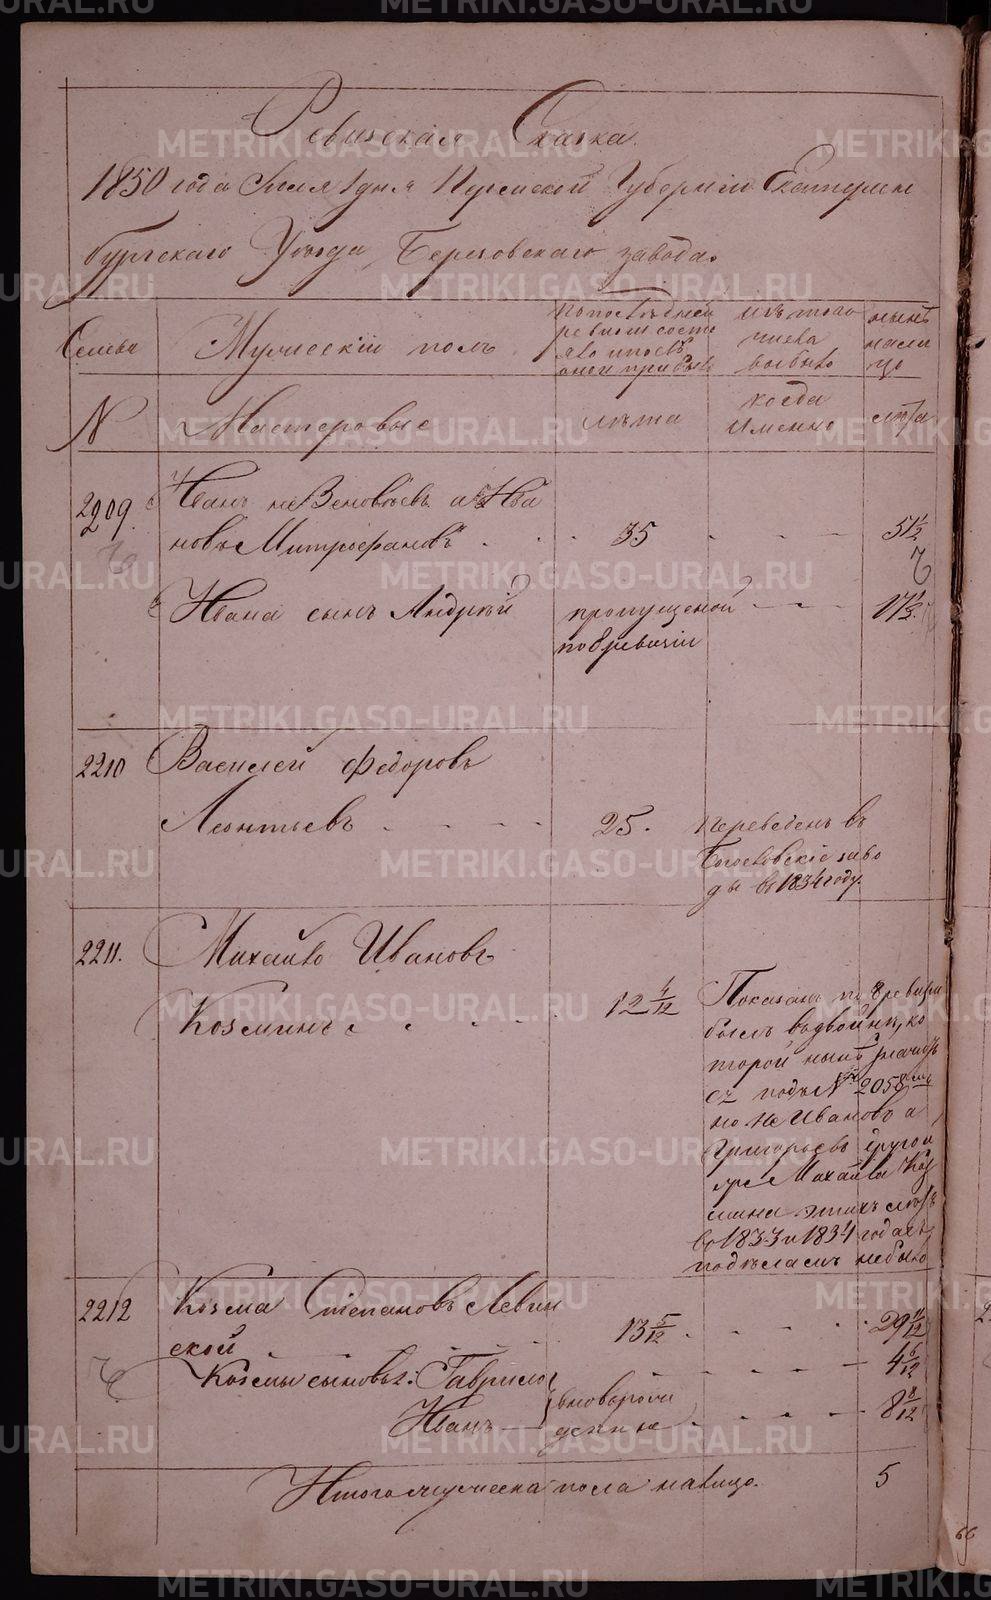 Ревизская Сказка.
1850 года Июля 1 дня Пермской Губернии Екатерин
бургскаго Уезда Березовскаго завода.
Семьи
Мужескiй полъ
По последней
ревизiи состо
яло и после
оной прибыло
Изъ того
числа
выбыло
ныне
на ли
цо
№
Мастеровые
лета
когда
Именно
лета
2209.
Иванъ не Веновьевъ а Ива
новъ Митрофановъ
35
51½
Ивана сынъ Андрей
пропущеной
по 8 ревизiи
17½
2210
Василей Федоровъ
Леонтьевъ
25.
Переведенъ въ
Богословскiе заво
ды въ 1834 году.
2211.
Михайло Ивановъ
Козминъ
12 4/12
Показанъ по 8 ревизiи
былъ вдвойне, ко
торой ныне значит
ся подъ № 2058 мъ
но не Ивановъ а
Григорьевъ другой
же Михайла Коз
мина этихъ летъ
въ 1833 и 1834 годахъ
подъ селамъ не было
2212
Козма Степановъ Левин
ской
13 5/12
29 11/12
Козмы сыновья: Гаврило
4 6/12
Иванъ
вновьрож
денные
8 8/12
Итого мужеска пола на лицо.
5
66
METRIKI.GASO-URAL.RU